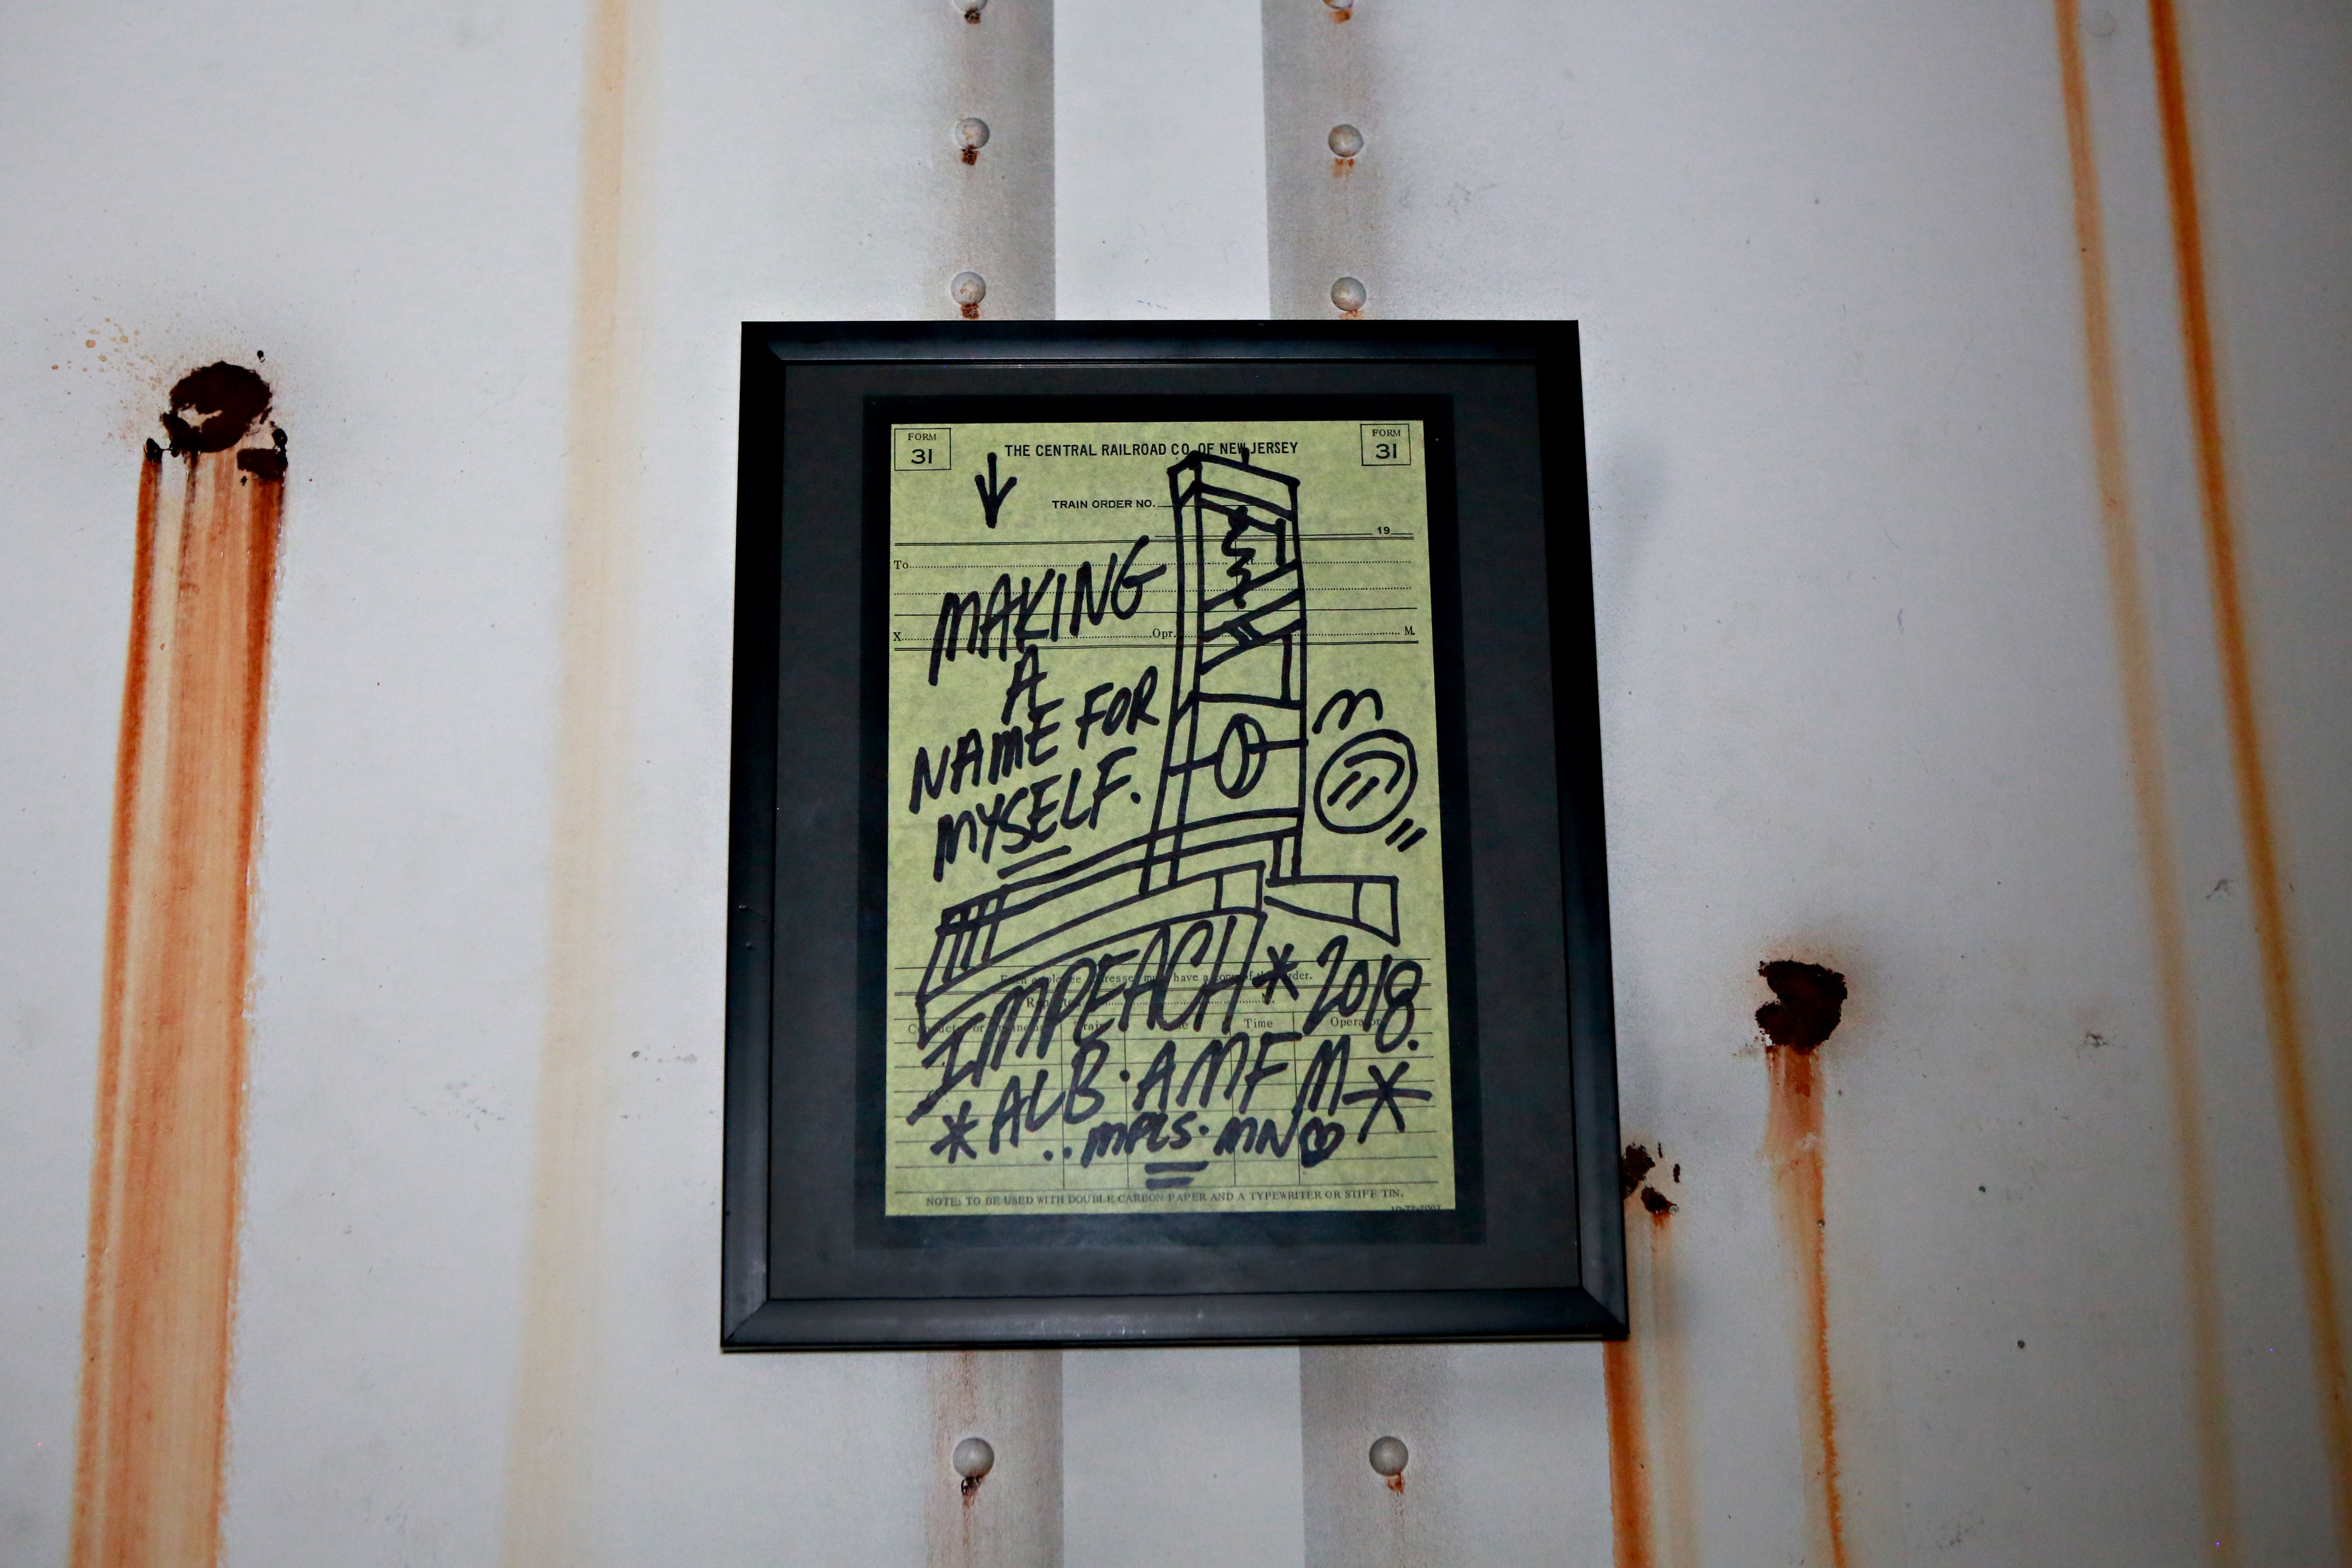 FORM
31
THE CENTRAL RAILROAD CO. OF NEW JERSEY
FORM
31
TRAIN ORDER NO.
19
To
X Opr. M.
MAKING
A
NAME FOR
MYSELF.
IMPEACH * 2018.
have a copy of this order.
Time Operator
* ALB · AMFM *
.. MPLS · MN ♡
NOTE: TO BE USED WITH DOUBLE CARBON PAPER AND A TYPEWRITER OR STIFF TIN.